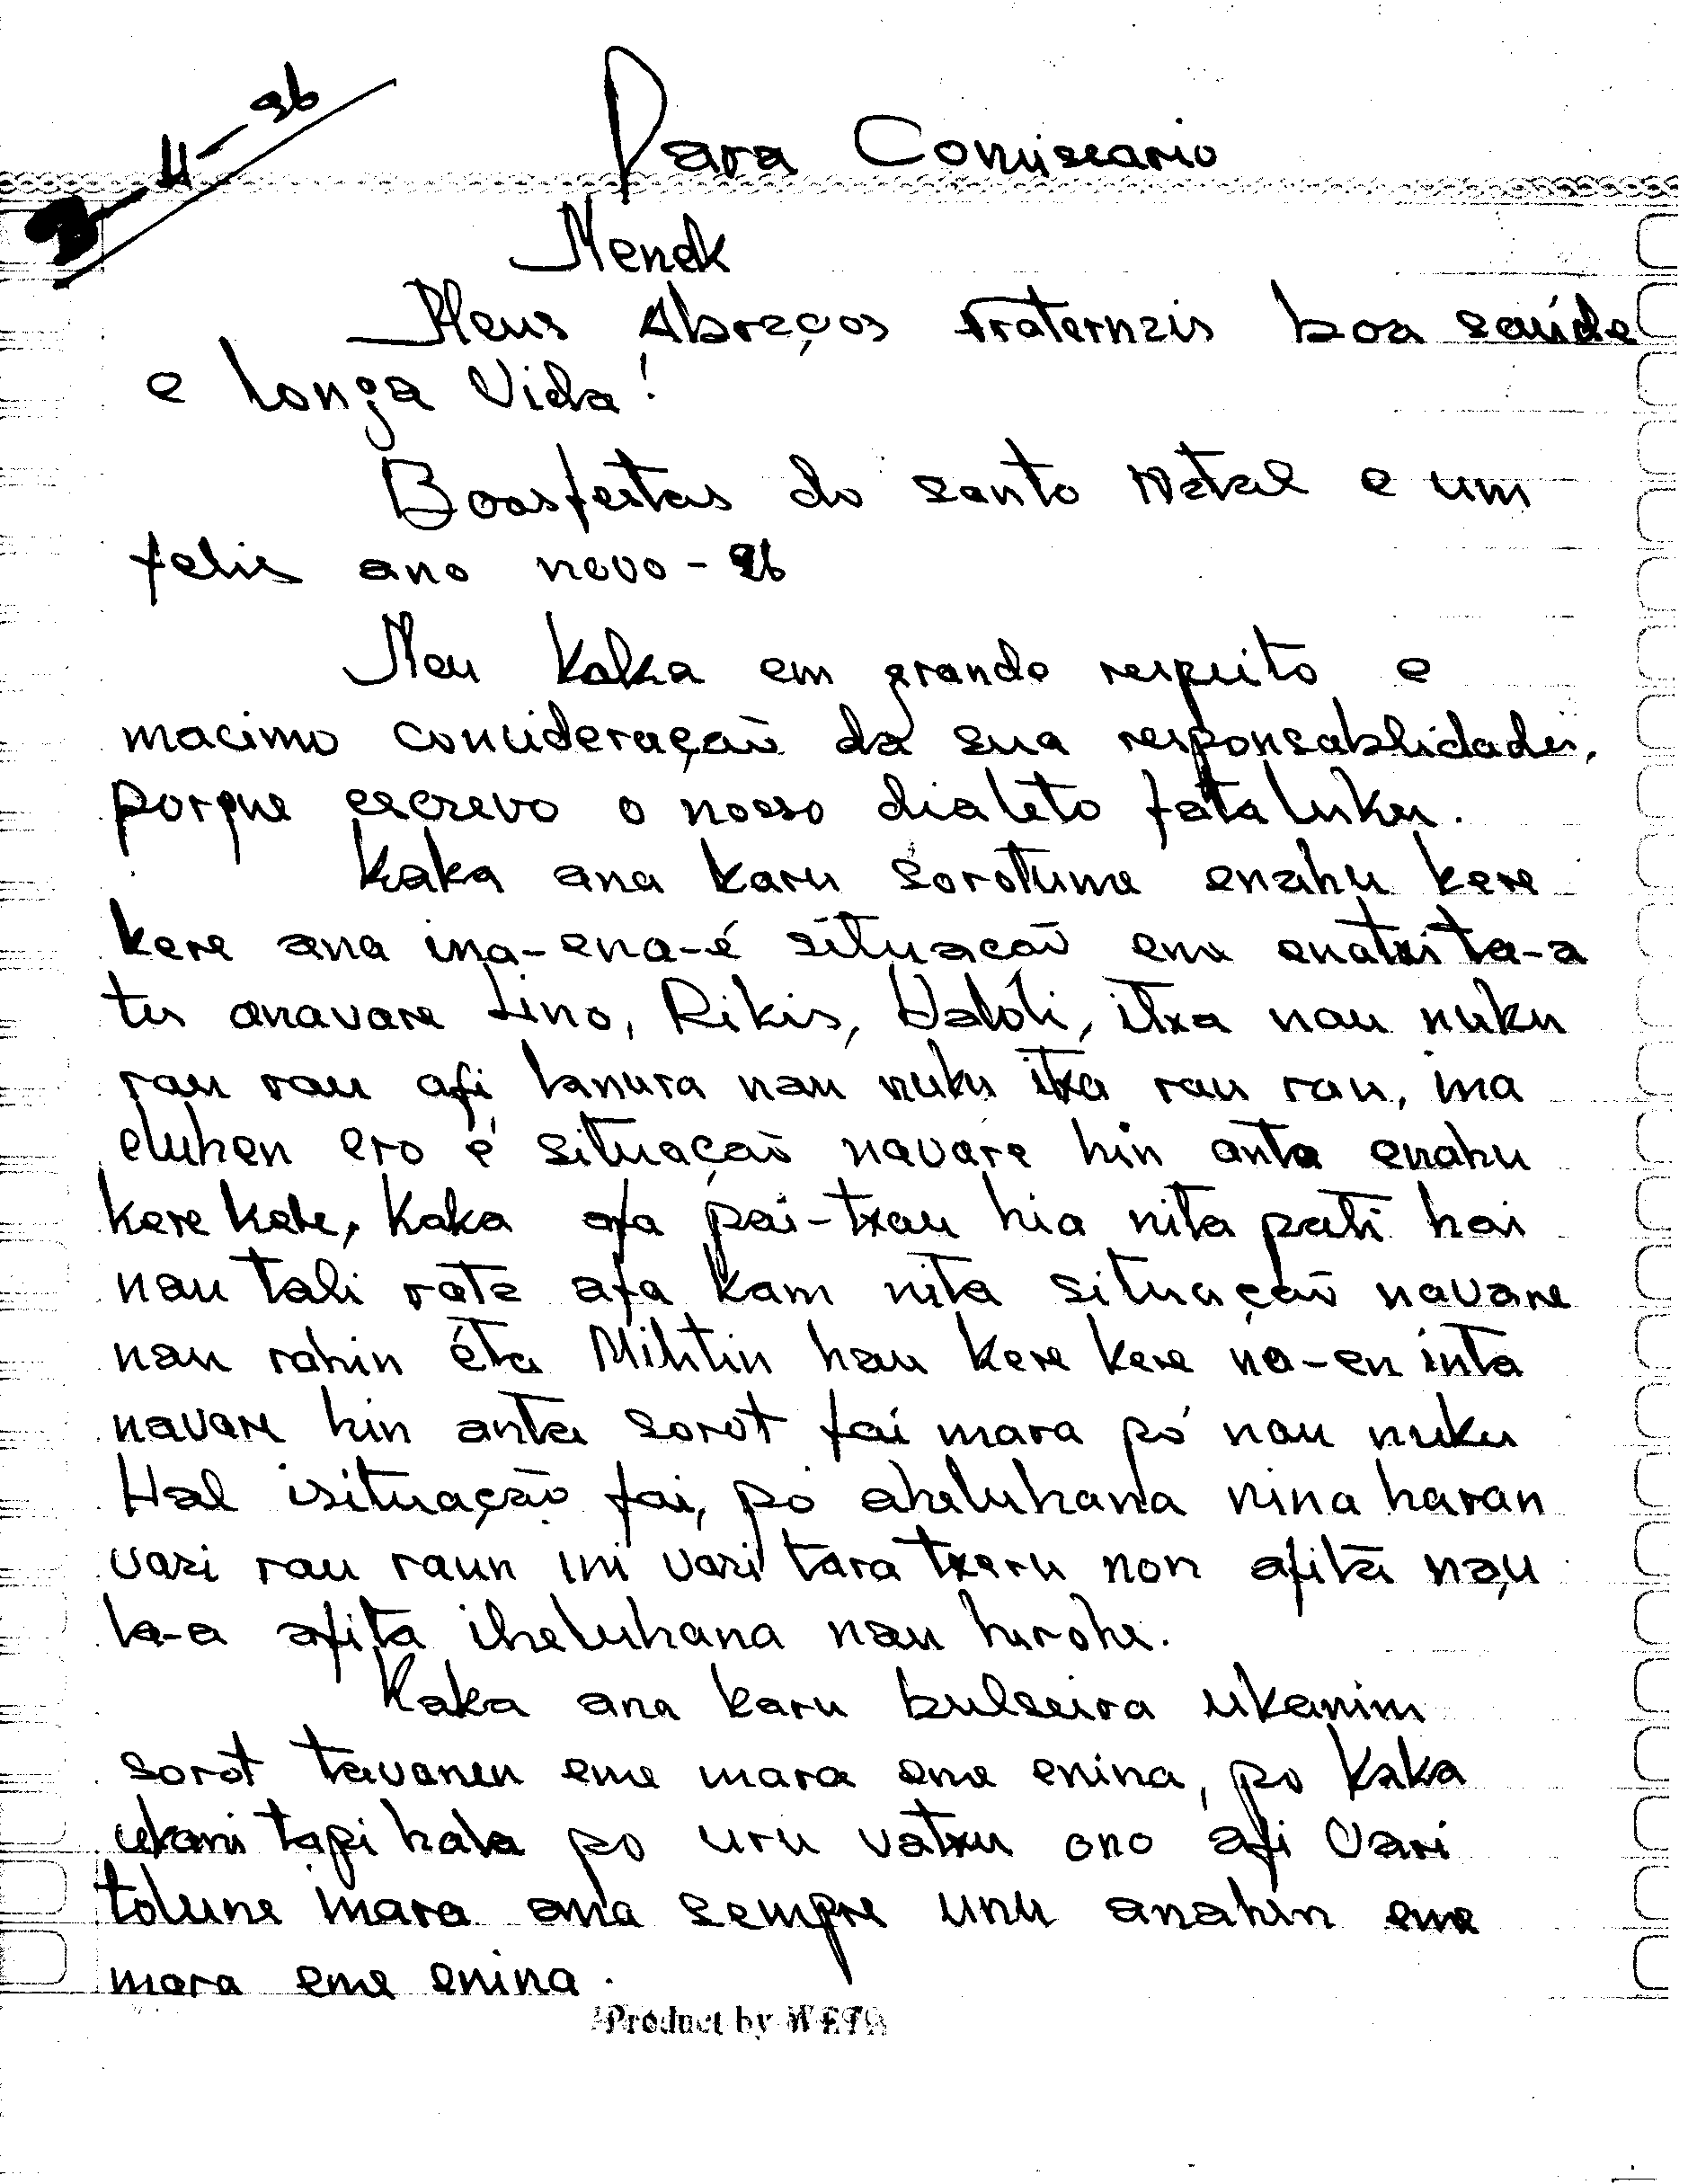 11-96
Para Comissario
Menek
Meus Abraços fraternais boa saúde
e longa Vida!
Boasfestas do santo Natal e um
felis ano novo-96
Meu Kaka em grande respeito e
macimo consideração da sua responsablidades,
porque escrevo o nosso dialeto fataluku.
Kaka ana karu sorotume enahu kere
kere ana ina-ena-é situacaõ eme
tu anavare Lino, Rikis, itxa nau nuku
rau rau afi lanura nau nuku itxa rau rau, ina
eluhen ero é situaçaõ navare hin anta enahu
kere kere, Kaka afa pai-txau hia nita pati hai
nau tali rata afa kam nita situaçaõ navare
nau rahin éta Mihtin hau kere kere na-en inta
navare hin anta sorot fai mara pó nau nuku
Hal isituação fai, pó aheluhana nina haran
vari rau raun ini vari tara txeru non afita nau
la-a afita iheluhana nau hurohe.
Kaka ana karu bulseira ukanim
sorot tavanen eme mara eme enina, po Kaka
ukani tapi hala po uru vatxu ono afi Vari
tolune mara ana sempre unu anahin eme
mara eme enina.
Product by